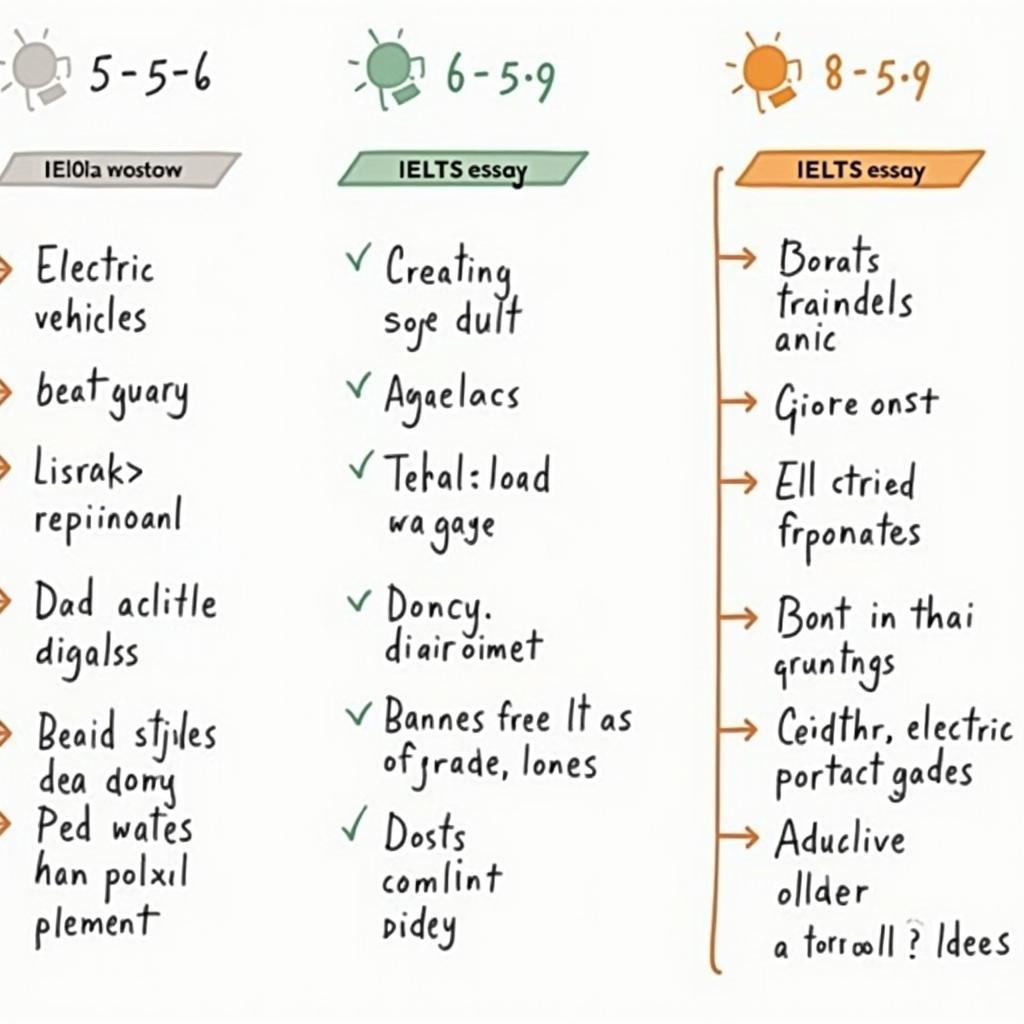 5-5-6
IEl0la wostow
Electric
vehicles
beat guary
Lisrak>
repiinoanl
Dad aclitle
digalss
Beaid stjıles
dea domy
Ped wates
han polxıl
plement
6-5.9
IELTS essay
Creating
soje dult
Agaelacs
Tekal: load
wa gaye
Doncy.
diairoimet
Bannes free It as
of grade, lones
Dosts
comlint
pidey
8-5.9
IELTS essay
Borats
traindels
anic
Giore onst
Ell ctried
frponates
Bont in thai
gruntngs
Ceidthr, electric
portact gades
Aduclive
ollder
a torroll ? Idees